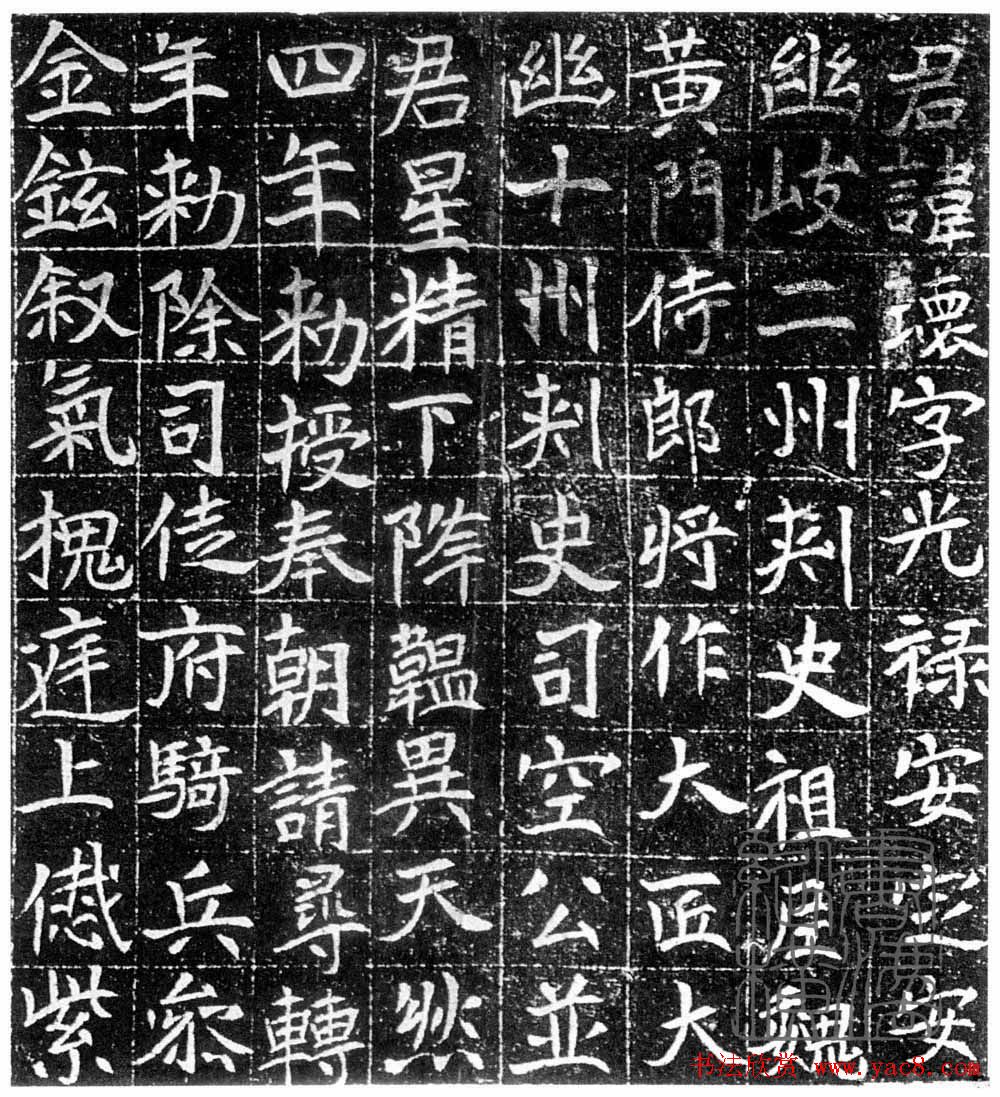 君諱壞字光祿安定安
幽岐二州刾史祖魏
黃門侍郎將作大匠大
幽十州刾史司空公並
君星精下降韞異天然
四年勑授奉朝請尋轉
年勑除司徒府騎兵參
金鉉叙氣槐庭上紫
书法欣赏 www.yac8.com